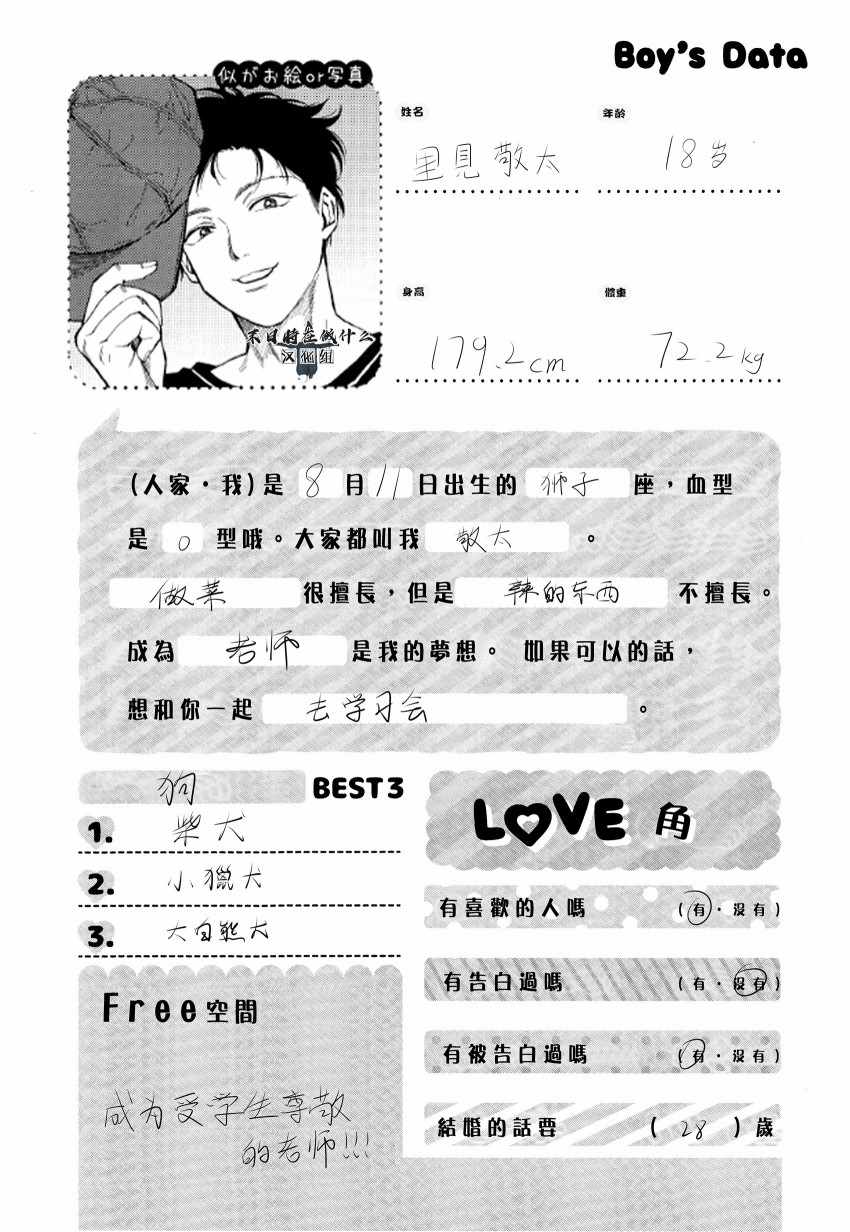 Boy's Data
似がお絵or写真
姓名
里見 敬太
年龄
18岁
身高
179.2cm
體重
72.2kg
不日時在做什么
汉化组
(人家・我)是 8 月 11 日出生的 狮子 座，血型
是 o 型哦。大家都叫我 敬太 。
做菜 很擅長，但是 辣的东西 不擅長。
成為 老师 是我的夢想。 如果可以的話，
想和你一起 去学习会 。
狗 BEST3
1. 柴犬
2. 小獵犬
3. 大白熊犬
LOVE 角
有喜歡的人嗎 (有・沒有)
有告白過嗎 (有・沒有)
有被告白過嗎 (有・沒有)
結婚的話要 ( 28 ) 歲
Free空間
成为受学生尊敬
的老师!!!